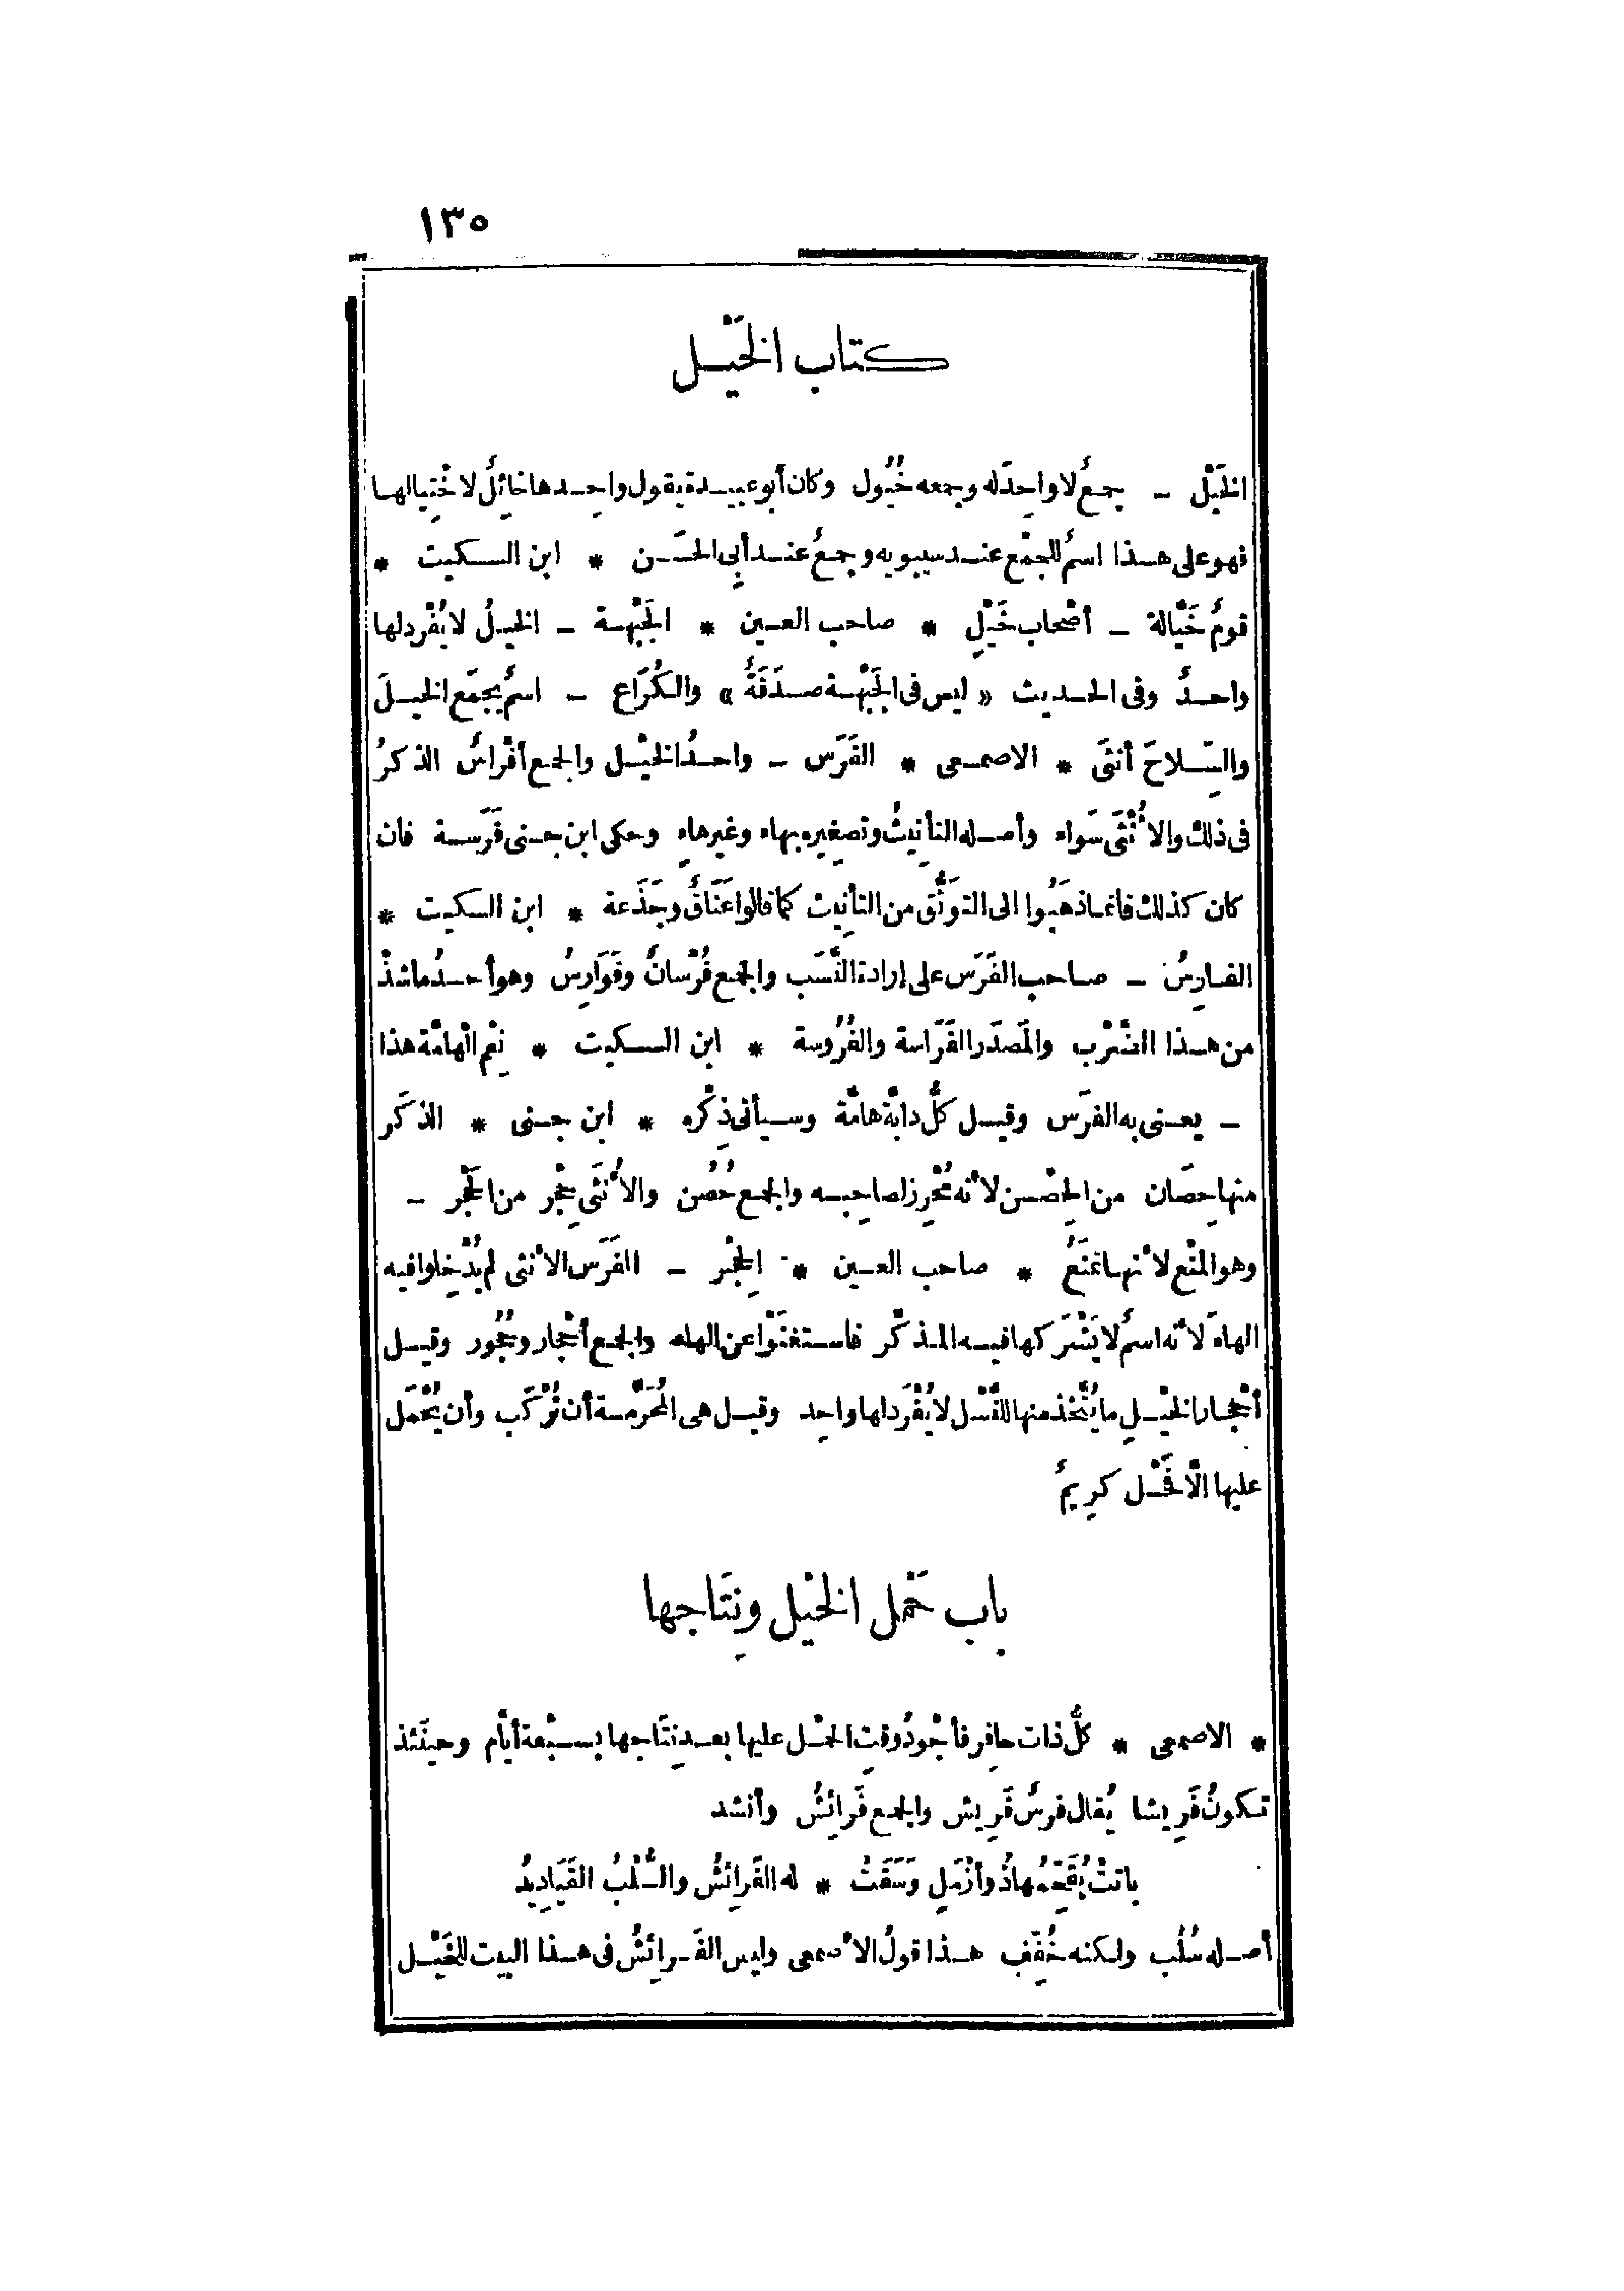 ١٣٥
كتاب الخَيْـل
الخَيْل - جمعٌ لا واحِدَ له وجمعه خُيُول وكان أبو عبيـدة يقول واحِـدها خائِلٌ لاخْتِيالهـا
فهو على هـذا اسمٌ للجمْع عنـد سيبويه وجمعٌ عنـد أبِي الحَسَـن * ابن السـكيت *
قومٌ خَيَّالة - أصْحاب خَيْلٍ * صاحب العـين * الجَبْهـة - الخيـلُ لا يُفْرد لها
واحـدٌ وفى الحـديث « ليس فى الجَبْهـة صـدَقَةٌ » والكُرَاع - اسمٌ يجمَع الخيـلَ
والسِّـلاحَ أنثَى * الاصمـعى * الفَرَس - واحـدُ الخيْـل والجمع أفْراسٌ الذكرُ
فى ذلك والأُنْثَى سَواء وأصـله التأنِيثُ وتصغِيره بهاء وغيرِ هاءٍ وحكى ابن جـنى فَرَسـة فان
كان كذلك فانمـا ذهَبُوا الى التوَثُّق من التأنِيث كما قالوا عَنَاقٌ وجَذَعة * ابن السكيت *
الفـارِسُ - صـاحب الفَرَس على إرادة النَّسَب والجمع فُرْسانٌ وفَوَارِسُ وهو أحـدُ ما شذّ
من هـذا الضَّرْب والمَصدَر الفَرَاسة والفُرُوسة * ابن السـكيت * نِعْم الْهامَّة هذا
- يعـنى به الفرَس وقيـل كلُّ دابَّة هامَّة وسـيأتى ذِكْره * ابن جـنى * الذكَر
منها حِصَان من الحِصْـن لأنه مُحْرِز لصاحِبـه والجمع حُصُن والأُنْثَى حِجْر من الحَجْر -
وهو المنْع لأنهـا تمنَعُ * صاحب العـين * الحِجْـر - الفَرَس الأنثى لم يُدْخِلوا فيه
الهاءَ لأنه اسمٌ لا يَشْرَكها فيـه المـذكَّر فاسـتغنَوْا عن الهاء والجمع أحْجار وحُجُور وقيـل
أحْجـار الخيْـلِ ما يُتَّخذ منها للنَّسْل لا يُفْرَد لها واحِد وقيـل هى المُحَرَّمـة أن تُرْكَب وأن يُحْمَل
عليها الَّا فَحْـل كرِيمٌ
باب حَمْل الخيْل ونِتَاجها
* الاصمعى * كلُّ ذات حافِر فأجْودُ وقتِ الحمْـل عليها بعـد نِتَاجها بسـبْعة أيَّام وحينَئذ
تـكونُ فَرِيشا يُقال فرسٌ فَرِيش والجمع فَرائِشُ وأنشد
باتتْ يُقَحِّمُها ذُو أزْمَلٍ وَسَقَتْ * له الفَرائِشُ والسُّلْبُ القَيَادِيدُ
أصـله سُلُب ولكنه خُفِّف هـذا قولُ الأصمعى وليس الفَـرائِشُ فى هـذا البيت للخَيْـل